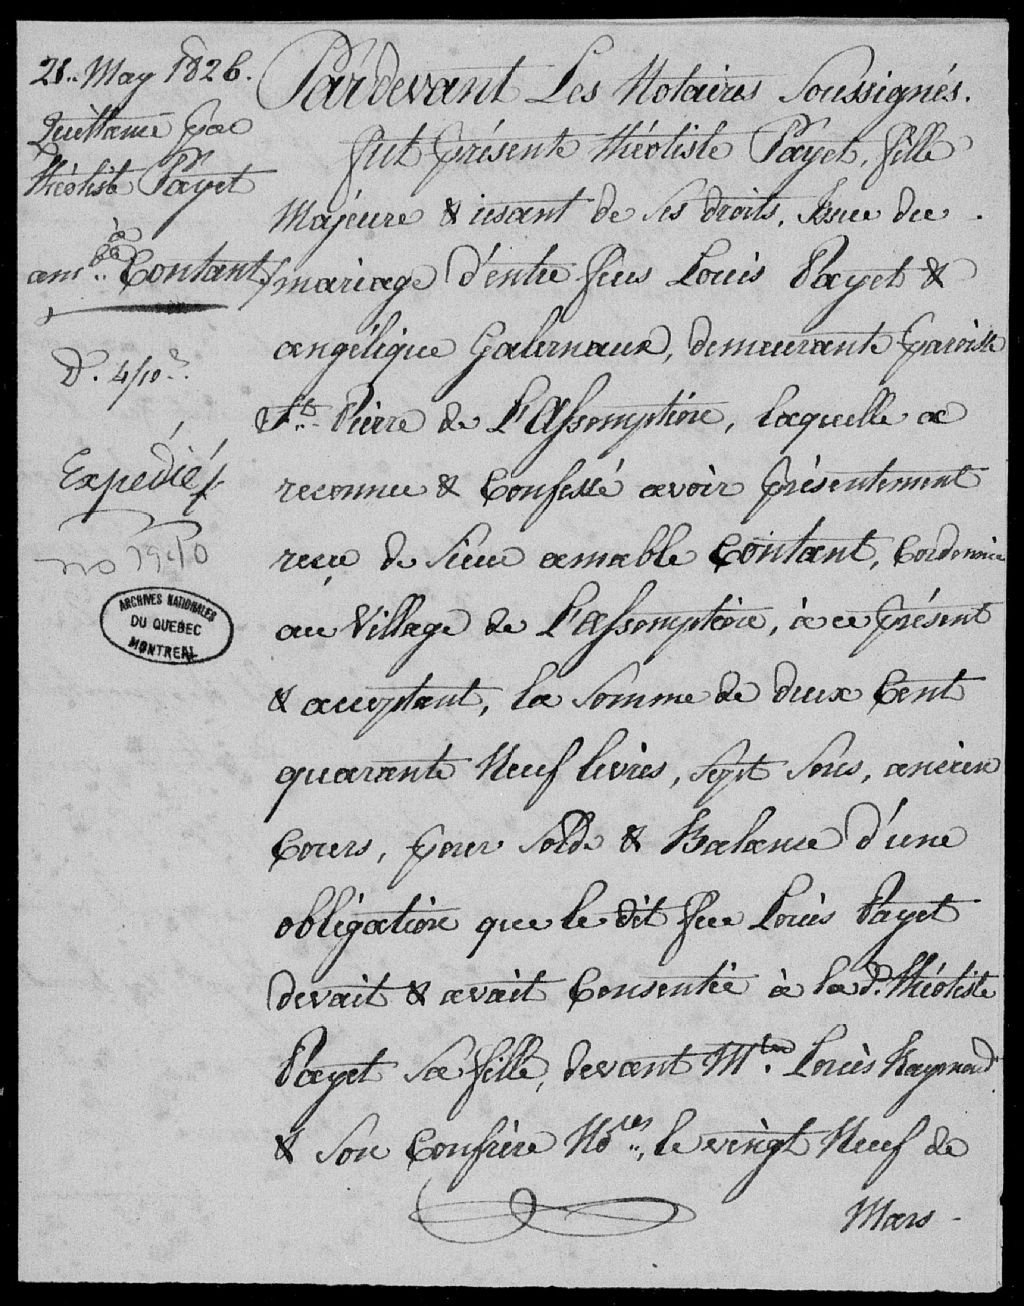 28.. May 1826.
Quittance par
Théotiste Payet
à
amble.. Contant
D. 4/10.e
Expédiée
no 1910
ARCHIVES NATIONALES
DU QUEBEC
MONTREAL
Pardevant Les Notaires Soussignés.
fut présente théotiste Payet, fille
Majeure & usant de Ses droits, Issue du
mariage d'entre feus Louis Payet &
angélique Galernaux, demeurante paroisse
St.. Pierre de L'Assomption, laquelle a
reconnu & Confessé avoir présentement
reçu de Sieur amable Contant, Cordonnier
au Village de L'assomption, à ce présent
& acceptant, la Somme de deux Cent
quarante Neuf livres, Sept Sous, ancien
Cours, pour Solde & Balance d'une
obligation que le dit feu Louis Payet
devait & avait Consentie à la d. théotiste
Payet Sa fille, devant Mtre. Louis Raymond
& Son Confrère No.res, le vingt Neuf de
Mars -